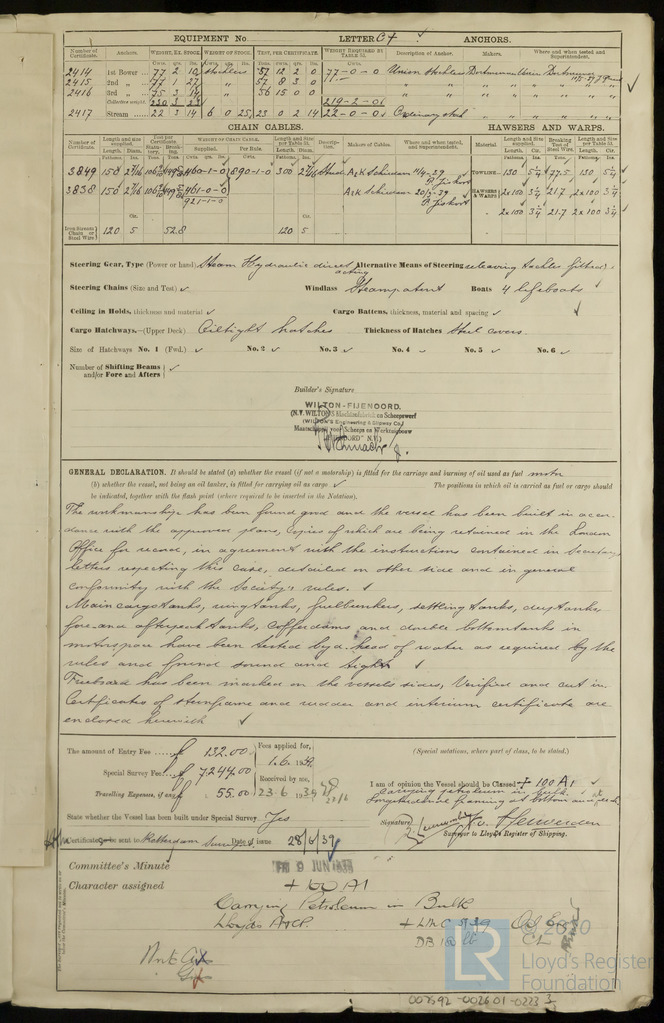 EQUIPMENT No. LETTER C† ANCHORS.
Number of Certificate. Anchors. WEIGHT, EX. STOCK WEIGHT OF STOCK. TEST, PER CERTIFICATE. WEIGHT REQUIRED BY TABLE 31. Description of Anchor. Makers. Where and when tested and Superintendent.
2414 1st Bower 77 2 10 Stockless 57 12 2 0 77-0-0 Union Stockless Dortmund
2415 2nd „ 77 1 27 „ 57 8 3 0
2416 3rd „ 75 3 14 „ 56 15 0 0
Collective weight. 230 3 23 219-2-0
2417 Stream 22 3 14 6 0 25 23 0 2 14 22-0-0 Ordinary stock
CHAIN CABLES. HAWSERS AND WARPS.
Number of Certificate. Length and size supplied. Test per Certificate. WEIGHT OF CHAIN CABLE. Length and Size per Table 31. Description. Makers of Cables. Where and when tested, and Superintendent. Material Length and Size supplied. Breaking Test of Steel Wire. Length and Size per Table 31.
3849 150 2 11/16 460-1-0 890-1-0 300 2 11/16 Stud Ark Schiedam 11/4-39 TOWLINE 130 5¼ 77.5 130 5¼
3838 150 2 11/16 461-0-0 Ark Schiedam HAWSERS & WARPS 2x100 3¼ 21.7 2x100 3¼
921-1-0
2x100 3¼ 21.7 2x100 3¼
Iron Stream Chain or Steel Wire 120 5 52.8 120 5
Steering Gear, Type (Power or hand) Steam Hydraulic direct acting Alternative Means of Steering relieving tackles fitted
Steering Chains (Size and Test) Windlass Steam patent Boats 4 lifeboats
Ceiling in Holds, thickness and material Cargo Battens, thickness, material and spacing
Cargo Hatchways.—(Upper Deck) Oiltight hatches Thickness of Hatches Steel covers
Size of Hatchways No. 1 (Fwd.) No. 2 No. 3 No. 4 No. 5 No. 6
Number of Shifting Beams and/or Fore and Afters
Builder's Signature
WILTON-FIJENOORD.
(N.V. WILTON'S Machinefabriek en Scheepswerf
(WILTON'S Engineering & Slipway Co.)
Maatschappij voor Scheeps en Werktuigbouw
"FIJENOORD" N.V.)
GENERAL DECLARATION. It should be stated (a) whether the vessel (if not a motorship) is fitted for the carriage and burning of oil used as fuel motor
(b) whether the vessel, not being an oil tanker, is fitted for carrying oil as cargo The positions in which oil is carried as fuel or cargo should
be indicated, together with the flash point (where required to be inserted in the Notation).
The workmanship has been found good and the vessel has been built in accor-
dance with the approved plans, copies of which are being retained in the London
Office for record, in agreement with the instructions contained in Secretary's
letters respecting this case, detailed on other side and in general
conformity with the Society's rules.
Main cargo tanks, wingtanks, fuelbunkers, settling tanks, deeptanks
fore and afterpeaktanks, cofferdams and double bottomtanks in
motorspace have been tested by a head of water as required by the
rules and found sound and tight
Freeboard has been marked on the vessels sides, Verified and cut in.
Certificates of sternframe and rudder and interim certificate are
enclosed herewith
The amount of Entry Fee ..... f 132.00 Fees applied for, 1.6.1939 (Special notations, where part of class, to be stated.)
Special Survey Fee f 7244.00 Received by me,
Travelling Expenses, if any f 55.00 23.6 1939 I am of opinion the Vessel should be Classed + 100 A1
Carrying petroleum in bulk
Longitudinal framing at bottom and deck
State whether the Vessel has been built under Special Survey Yes
Signature
Surveyor to Lloyd's Register of Shipping.
Certificate to be sent to Rotterdam Surveyors Date of issue 28/6/39
Committee's Minute FRI 9 JUN 1939
Character assigned + 100 A1
Carrying Petroleum in Bulk
Lloyds A&CP. + LMC 5.39 Oil Eng
DB 180 lb CL
© 2020
LR
Lloyd's Register
Foundation
007592-002601-0223 3